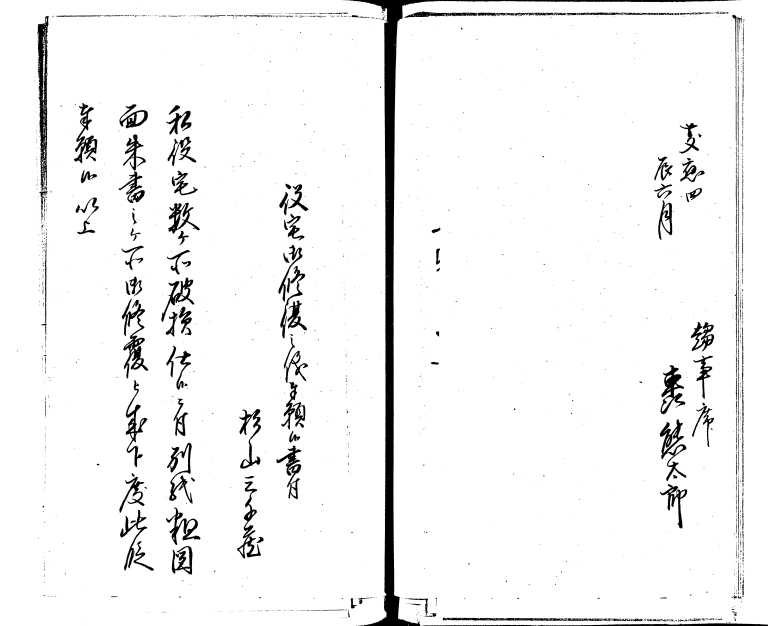 慶應四
辰六月
趨事席
熊太郎
役宅御修復之儀奉願候書付
杉山三千蔵
私役宅数ケ所破損仕候ニ付別紙粗図
面朱書之ケ所御修覆被成下度此段
奉願候以上